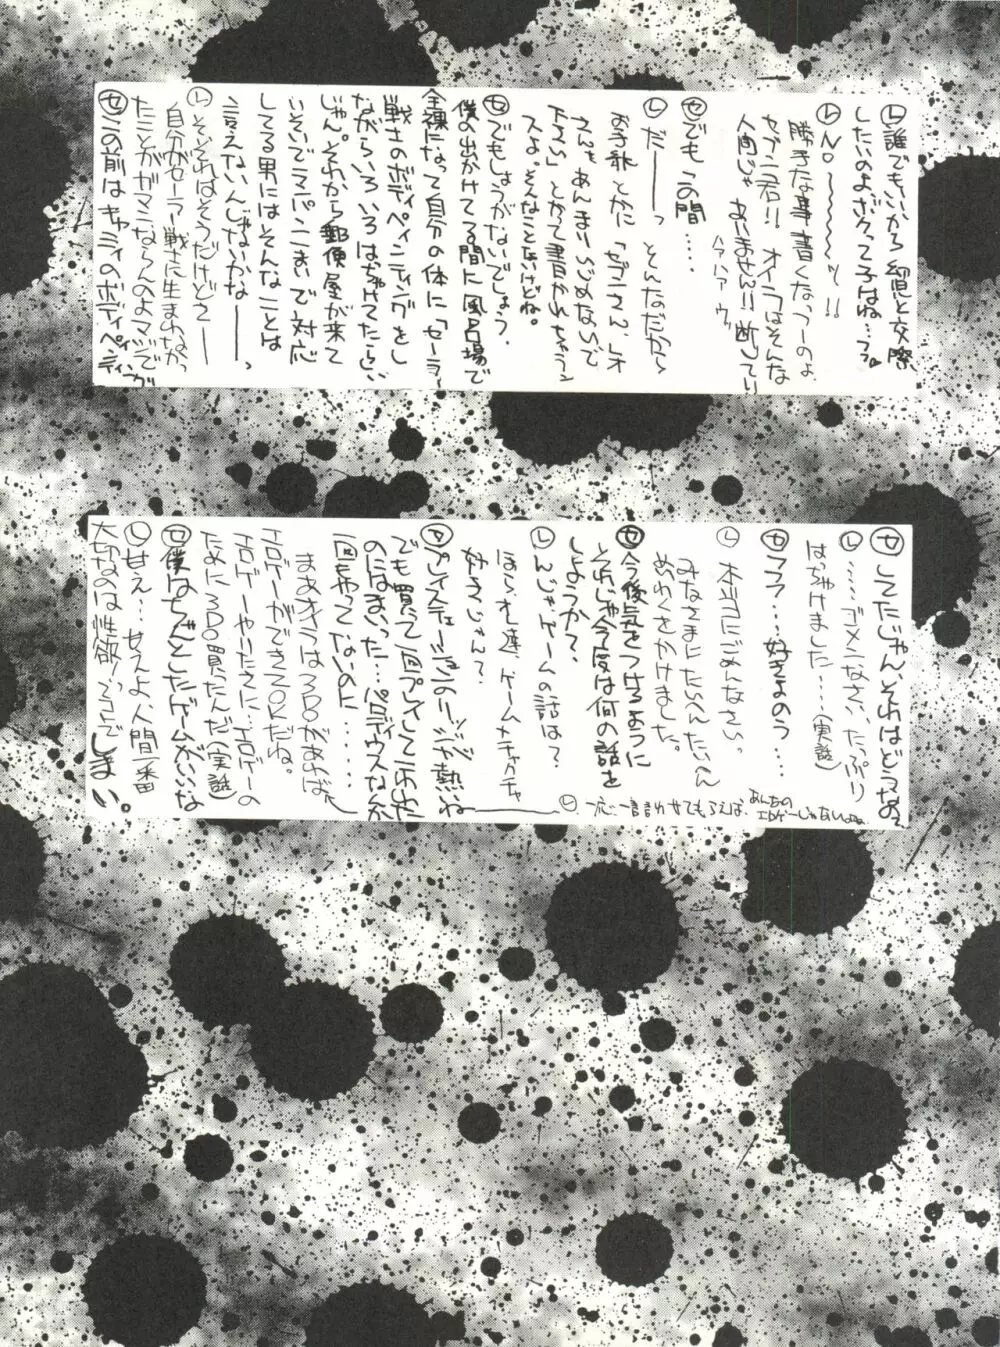 ㋹誰でもいいから幼児と交際
したいのよボクって子はね…でっ
㋹No〜〜〜〜〜ッ!!
勝手な事書くなっつーのよ
セブン君!! オイラはそんな
人間じゃありません!!断じて!!
ハァハァ ウッ
㋝でもこの間…
㋹だ——っ とんなだから
お手紙とかに「セブンさん、レオ
さんをあんまりいじめないで
下さい」とかって書かれちゃうん
スよ。そんなことないけどね。
㋝でもしょうがないでしょう。
僕の出かけてる間に風呂場で
全裸になって自分の体に「セーラー
戦士のボディペインティングをし
ながらいろいろはぢゃけてたとい
じゃん。それから郵便屋が来て
いそいでTシャツとパンツまいて対応
してる男にはそんなことは
言えないんじゃないかな——っ
㋹そ、それはそうだけどさ——
自分がセーラー戦士に生まれなかっ
たことがガマンならんのよマジで
㋝この前はキャミィのボディペインティング
㋝してたじゃん、それはどうなの。
㋹……ゴメンなさい、たっぷり
はぢゃけました……(実話)
㋝フフフ…好きよのう…
㋹本当にごめんなさい。
みなさまにたいへんたいへん
めいわくをかけました。
㋝今後気をつけるように
それじゃ今度は何の話を
しようか?
㋹んじゃ、ゲームの話は?
ほらオレ達、ゲームメチャクチャ
好きじゃん?
㋝プレイステーションのリッジが熱ぃね
でも買って一回プレイしてこわれた
のにはまいった…パロディウスなんか
一回もやってないのに……
まあオイラは3DOがあれば
エロゲーができてOKだね。
エロゲーやりたさに、エロゲーの
ために3DO買ったんだ(実話)
㋝僕はちゃんとしたゲームがいいな
㋹甘え…甘えよ、人間一番
大切なのは性欲!ってことで
しまい。
㋹一応一言言わせてもらえば、あんたの
エロゲーじゃないのね